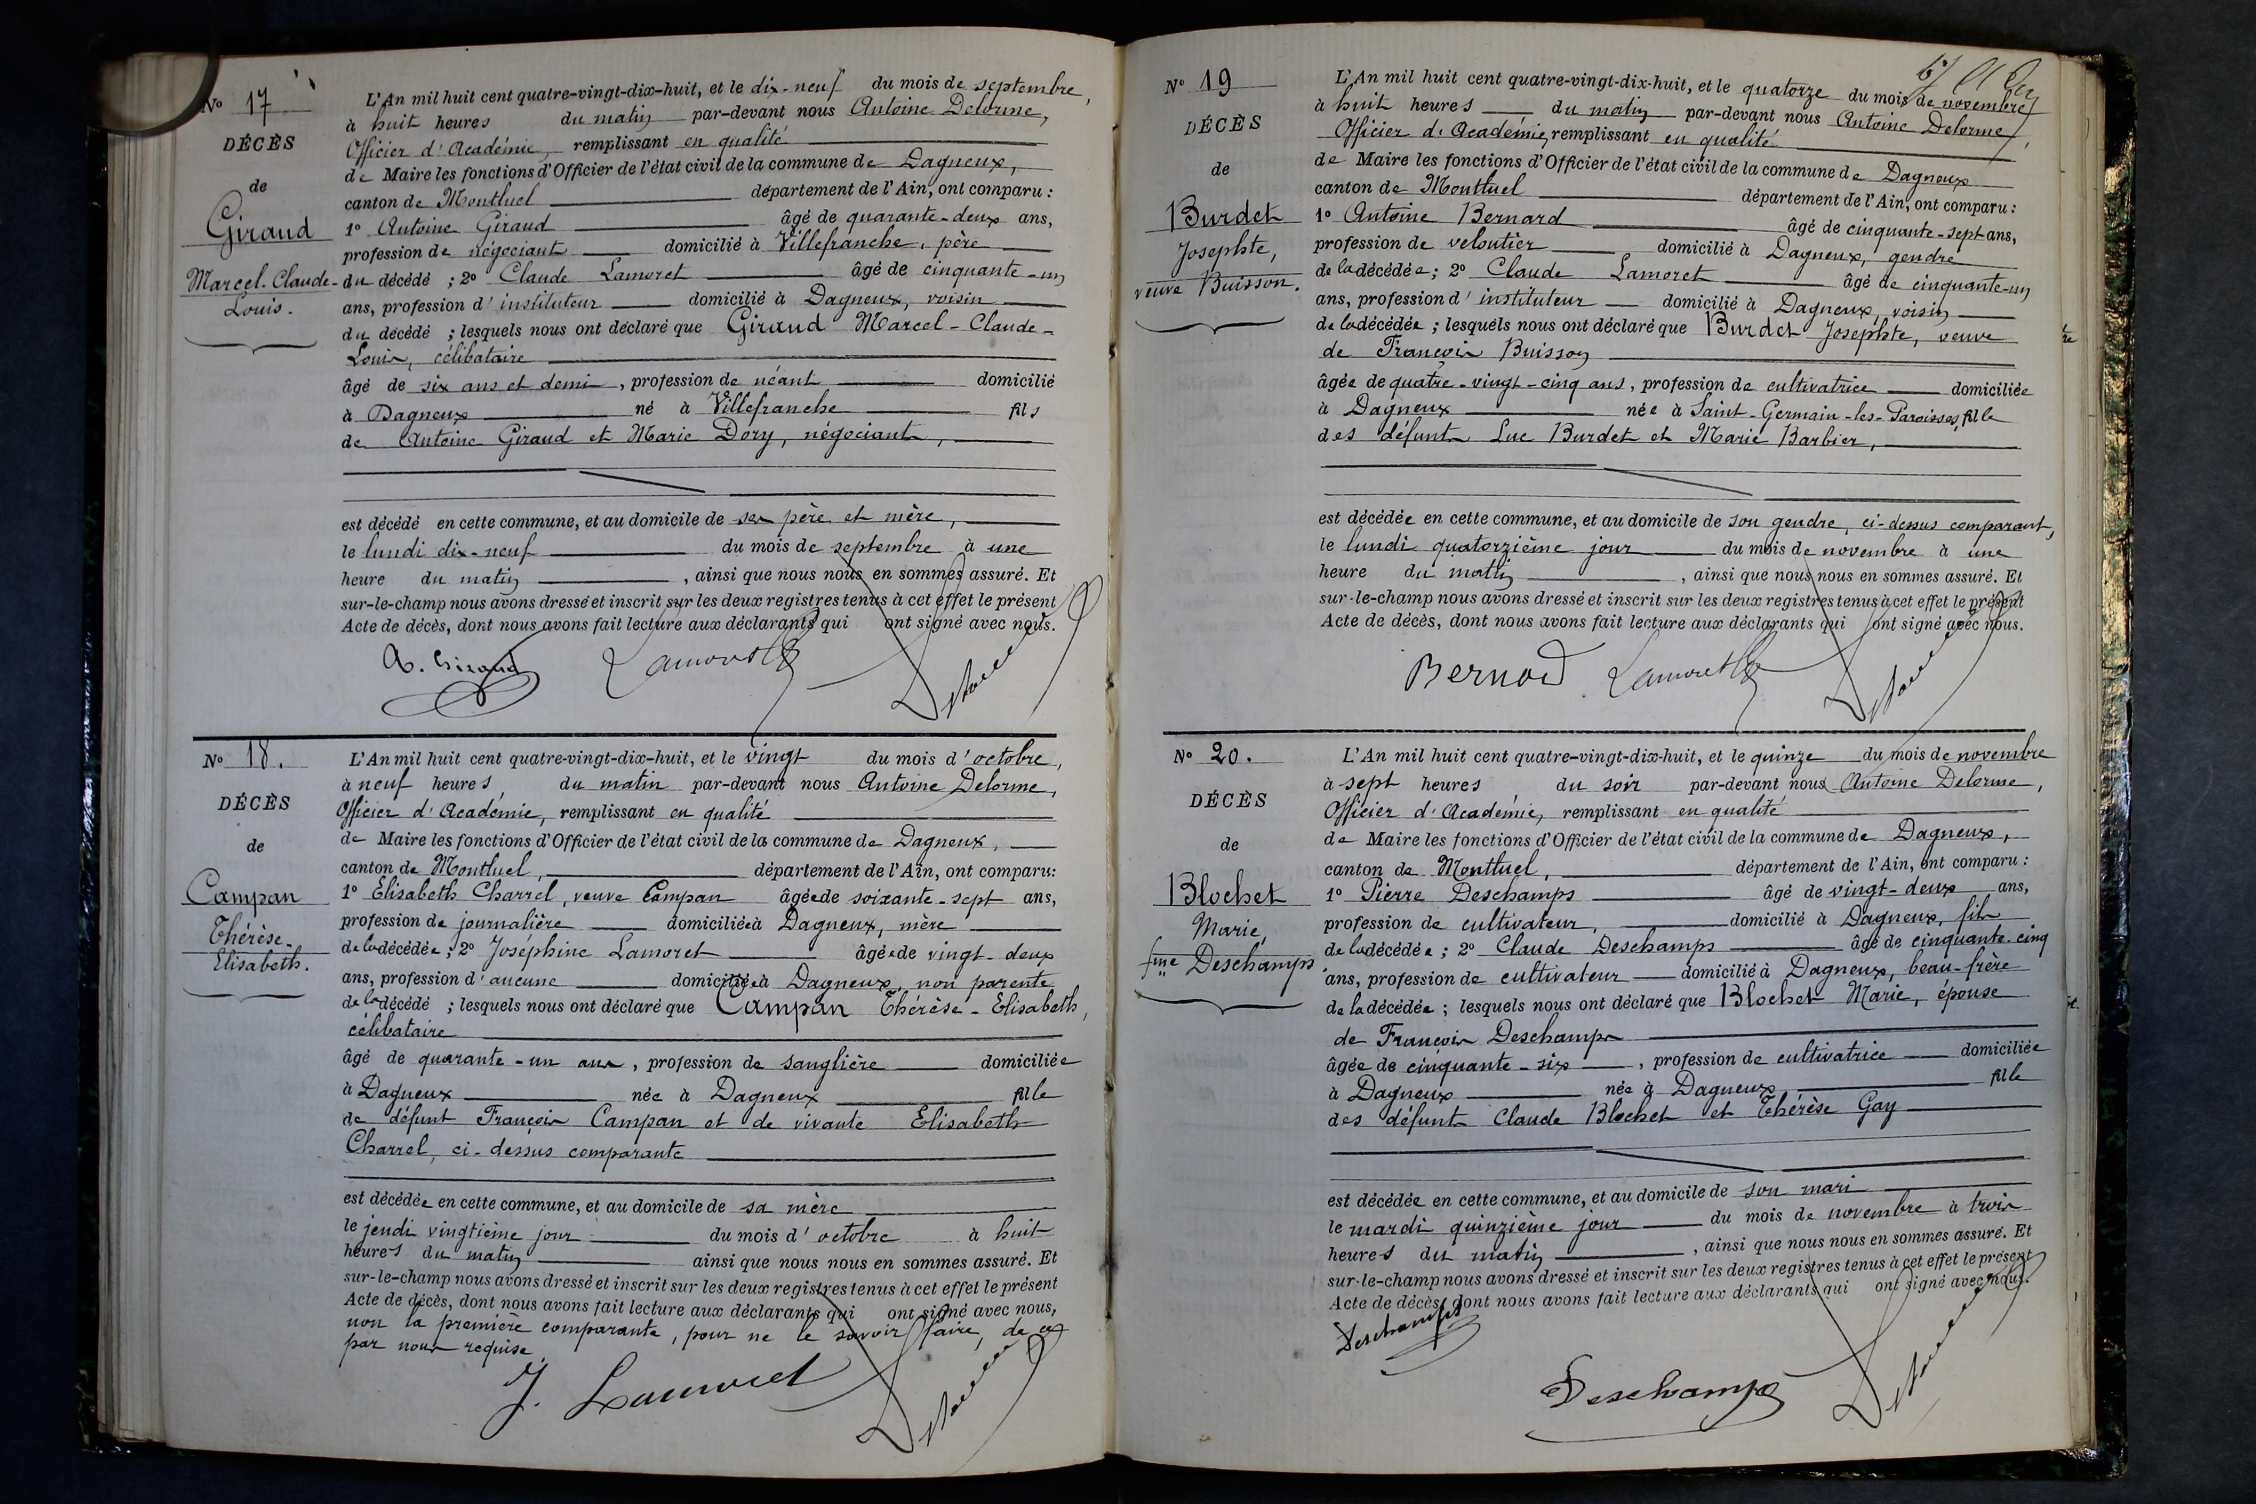 N° 17
DÉCÈS
de
Giraud
Marcel-Claude-
Louis.
L'An mil huit cent quatre-vingt-dix-huit, et le dix-neuf du mois de septembre,
à huit heures du matin par-devant nous Antoine Delorme,
Officier d'Académie, remplissant en qualité
de Maire les fonctions d'Officier de l'état civil de la commune de Dagneux,
canton de Montluel département de l'Ain, ont comparu :
1° Antoine Giraud âgé de quarante-deux ans,
profession de négociant domicilié à Villefranche, père
du décédé ; 2° Claude Lamoret âgé de cinquante-un
ans, profession d'instituteur domicilié à Dagneux, voisin
du décédé ; lesquels nous ont déclaré que Giraud Marcel-Claude-
Louis, célibataire
âgé de six ans et demi, profession de néant domicilié
à Dagneux né à Villefranche fils
de Antoine Giraud et Marie Dory, négociants,
est décédé en cette commune, et au domicile de ses père et mère,
le lundi dix-neuf du mois de septembre à une
heure du matin, ainsi que nous nous en sommes assuré. Et
sur-le-champ nous avons dressé et inscrit sur les deux registres tenus à cet effet le présent
Acte de décès, dont nous avons fait lecture aux déclarants qui ont signé avec nous.
A. Giraud Lamoret Delorme
N° 18.
DÉCÈS
de
Campan
Thérèse-
Elisabeth.
L'An mil huit cent quatre-vingt-dix-huit, et le vingt du mois d'octobre,
à neuf heures du matin par-devant nous Antoine Delorme,
Officier d'Académie, remplissant en qualité
de Maire les fonctions d'Officier de l'état civil de la commune de Dagneux,
canton de Montluel, département de l'Ain, ont comparu:
1° Elisabeth Charrel, veuve Campan âgée de soixante-sept ans,
profession de journalière domiciliée à Dagneux, mère
de la décédée ; 2° Joséphine Lamoret âgée de vingt-deux
ans, profession d'aucune domiciliée à Dagneux, non parente
de la décédé ; lesquels nous ont déclaré que Campan Thérèse-Elisabeth,
célibataire
âgé de quarante-un ans, profession de sanglière domiciliée
à Dagneux née à Dagneux fille
de défunt François Campan et de vivante Elisabeth
Charrel, ci-dessus comparante
est décédée en cette commune, et au domicile de sa mère
le jeudi vingtième jour du mois d'octobre à huit
heures du matin ainsi que nous nous en sommes assuré. Et
sur-le-champ nous avons dressé et inscrit sur les deux registres tenus à cet effet le présent
Acte de décès, dont nous avons fait lecture aux déclarants qui ont signé avec nous,
non la première comparante, pour ne le savoir faire, de ce
par nous requise
J. Lamoret Delorme
N° 19
DÉCÈS
de
Burdet
Josephte,
veuve Buisson.
L'An mil huit cent quatre-vingt-dix-huit, et le quatorze du mois de novembre
à huit heures du matin par-devant nous Antoine Delorme,
Officier d'Académie, remplissant en qualité
de Maire les fonctions d'Officier de l'état civil de la commune de Dagneux
canton de Montluel département de l'Ain, ont comparu :
1° Antoine Bernard âgé de cinquante-sept ans,
profession de veloutier domicilié à Dagneux, gendre
de la décédée ; 2° Claude Lamoret âgé de cinquante-un
ans, profession d'instituteur domicilié à Dagneux, voisin
de la décédée ; lesquels nous ont déclaré que Burdet Josephte, veuve
de François Buisson
âgée de quatre-vingt-cinq ans, profession de cultivatrice domiciliée
à Dagneux née à Saint-Germain-les-Paroisses, fille
des défunts Luc Burdet et Marie Barbier,
est décédée en cette commune, et au domicile de son gendre, ci-dessus comparant,
le lundi quatorzième jour du mois de novembre à une
heure du matin, ainsi que nous nous en sommes assuré. Et
sur-le-champ nous avons dressé et inscrit sur les deux registres tenus à cet effet le présent
Acte de décès, dont nous avons fait lecture aux déclarants qui ont signé avec nous.
Bernard Lamoret Delorme
N° 20.
DÉCÈS
de
Blochet
Marie,
fme Deschamps
L'An mil huit cent quatre-vingt-dix-huit, et le quinze du mois de novembre
à sept heures du soir par-devant nous Antoine Delorme,
Officier d'Académie, remplissant en qualité
de Maire les fonctions d'Officier de l'état civil de la commune de Dagneux,
canton de Montluel, département de l'Ain, ont comparu :
1° Pierre Deschamps âgé de vingt-deux ans,
profession de cultivateur, domicilié à Dagneux, fils
de la décédée ; 2° Claude Deschamps âgé de cinquante-cinq
ans, profession de cultivateur domicilié à Dagneux, beau-frère
de la décédée ; lesquels nous ont déclaré que Blochet Marie, épouse
de François Deschamps
âgée de cinquante-six, profession de cultivatrice domiciliée
à Dagneux née à Dagneux, fille
des défunts Claude Blochet et Thérèse Gay
est décédée en cette commune, et au domicile de son mari
le mardi quinzième jour du mois de novembre à trois
heures du matin, ainsi que nous nous en sommes assuré. Et
sur-le-champ nous avons dressé et inscrit sur les deux registres tenus à cet effet le présent
Acte de décès, dont nous avons fait lecture aux déclarants qui ont signé avec nous.
Deschamps
Deschamps Delorme